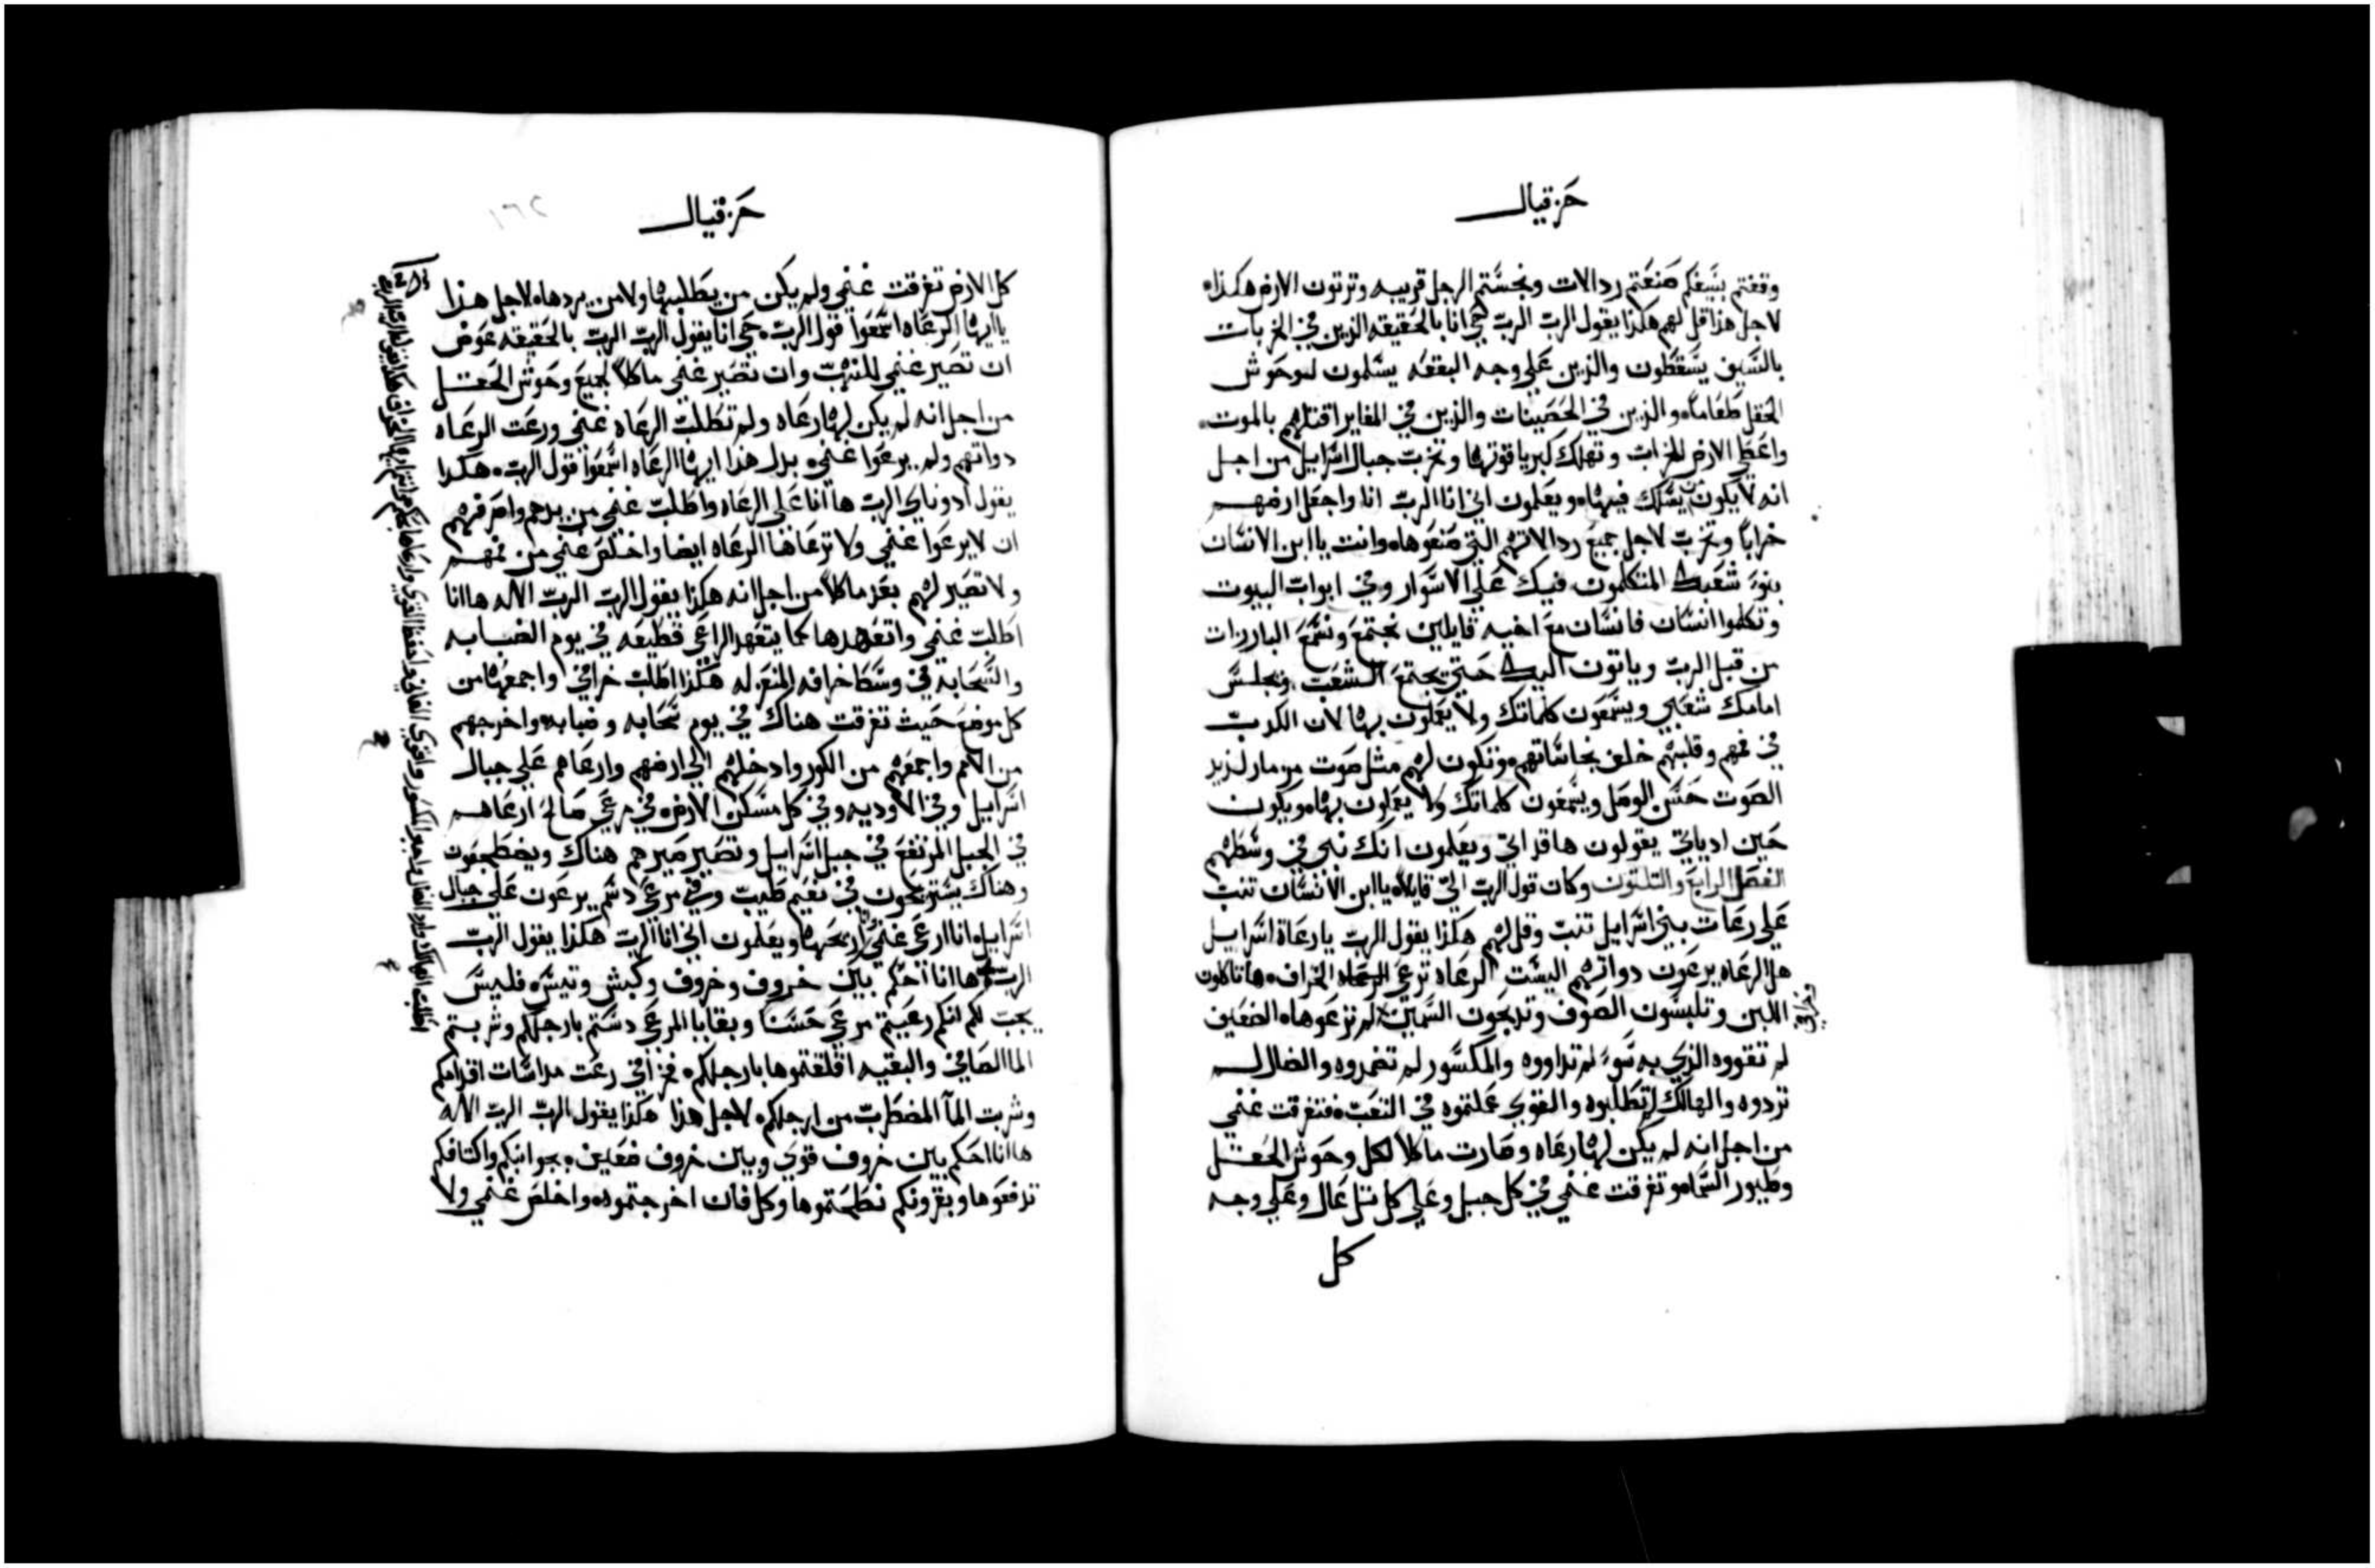 حزقيال
وقفتم بسيفكم صنعتم ردالات ونجستم الرجل قريبه وترتون الارض هكذا
لاجل هذا قل لهم هكذا يقول الرب الرب حي انا بالحقيقه الذين في الخربات
بالسيف يسقطون والذين علي وجه البقعه يسلمون لوحوش
الحقل طعاما والذين في الحصينات والذين في المغاير اقتلهم بالموت
واعطي الارض للخراب وتهلك كبريا قوتها وتخرب جبال اسراييل من اجل
انه لا يكون من يسلك فيها ويعلمون اني انا الرب انا واجعل ارضهم
خرابا وتخرب لاجل جميع ردالاتهم التي صنعوها وانت يا ابن الانسان
بنو شعبك المتكلمون فيك علي الاسوار وفي ابواب البيوت
وتكلموا انسان فانسان مع اخيه قايلين نجتمع ونسمع البارزات
من قبل الرب وياتون اليك حتي يجتمع الشعب ويجلس
امامك شعبي ويسمعون كلماتك ولا يعملون بها لان الكدب
في فمهم وقلبهم خلف نجاساتهم وتكون لهم مثل صوت مزمار لذيذ
الصوت حسن الوصل ويسمعون كلماتك ولا يعملون بها ويكون
حين ادياتي يقولون ها قد اتي ويعلمون انك نبي في وسطهم
الفصل الرابع والتلتون وكان قول الرب الي قايلا يا ابن الانسان تنب
علي رعات بني اسراييل تنب وقل لهم هكذا يقول الرب يا رعاة اسراييل
هل الرعاه يرعون دواتهم اليست الرعاه ترعي الخراف ها تاكلون
اللبن وتلبسون الصوف وتدبحون السمين لم ترعوها الضعيف
وخرافي
لم تقووه الذي به سوء لم تداووه والمكسور لم تضمدوه والضال لم
تردوه والهالك لم تطلبوه والقوي عملتموه في التعب فتفرقت غنمي
من اجل انه لم يكن لها رعاه وصارت ماكلا لكل وحوش الحقل
وطيور السما وتفرقت غنمي في كل جبل وعلي كل تل عال وعلي وجه
كل
حزقيال
كل الارض تفرقت غنمي ولم يكن من يطلبها ولا من يردها لاجل هذا
يا ايها الرعاه اسمعوا قول الرب حي انا يقول الرب الرب بالحقيقه عوض
ان تصير غنمي للنهب وان تصير غنمي ماكلا لجميع وحوش الحقل
من اجل انه لم يكن لها رعاه ولم تطلب الرعاه غنمي ورعت الرعاه
دواتهم ولم يرعوا غنمي بدل هذا ايها الرعاه اسمعوا قول الرب هكذا
يقول ادوناي الرب ها انا علي الرعاه واطلب غنمي من يدهم واصرفهم
ان لا يرعوا غنمي ولا ترعاها الرعاه ايضا واخلص غنمي من فمهم
ولا تصير لهم بعد ماكلا من اجل انه هكذا يقول الرب الرب الاله ها انا
اطلب غنمي واتعهدها كما يتعهد الراعي قطيعه في يوم الضبابه
والسحابة في وسط خرافه المنعزله هكذا اطلب خرافي واجمعها من
كل موضع حيث تفرقت هناك في يوم سحابه وضبابه واخرجهم
من الامم واجمعهم من الكور وادخلهم الي ارضهم وارعاهم علي جبال
اسراييل وفي الاوديه وفي كل مسكن الارض في مرعي صالح ارعاهم
في الجبل المرتفع في جبل اسراييل وتصير صيرهم هناك ويضطجعون
وهناك يستريحون في نعيم طيب وفي مرعي دسم يرعون علي جبال
اسراييل انا ارعي غنمي وانا اريحها ويعلمون اني انا الرب هكذا يقول الرب
الرب ها انا احكم بين خروف وخروف وكبش وتيس فليس
يجب لكم انكم رعيتم مرعي حسنا وبقايا المرعي دستم بارجلكم وشربتم
الما الصافي والبقيه اقلقتموها بارجلكم فخرافي رعت مداسات اقدامكم
وشربت المآ المضطرب من ارجلكم لاجل هذا هكذا يقول الرب الرب الاله
ها انا احكم بين خروف قوي وبين خروف ضعيف بجوانبكم واكتافكم
تدفعوها وبقرونكم نطحتموها وكل فان اخرجتموه واخلص غنمي ولا